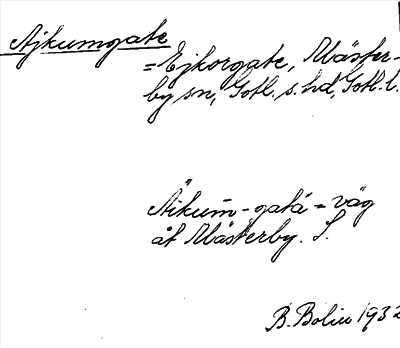 Ajkumgate
= Ejkorgate, Mäster-
by sn, Gotl. s. hd, Gotl. l.
Äikum̄-gatá = väg
åt Mästerby. S.
B. Bolin 1932